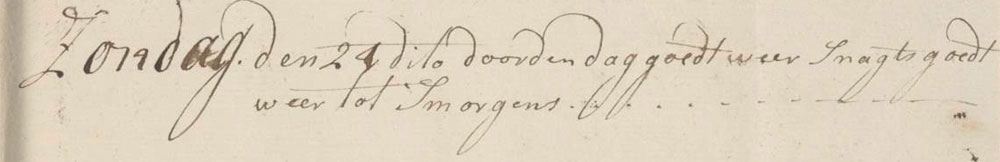 Zondag. den 24 dito door den dag goedt weer Snagts goedt
weer tot Smorgens . . . . . . . . - - - -